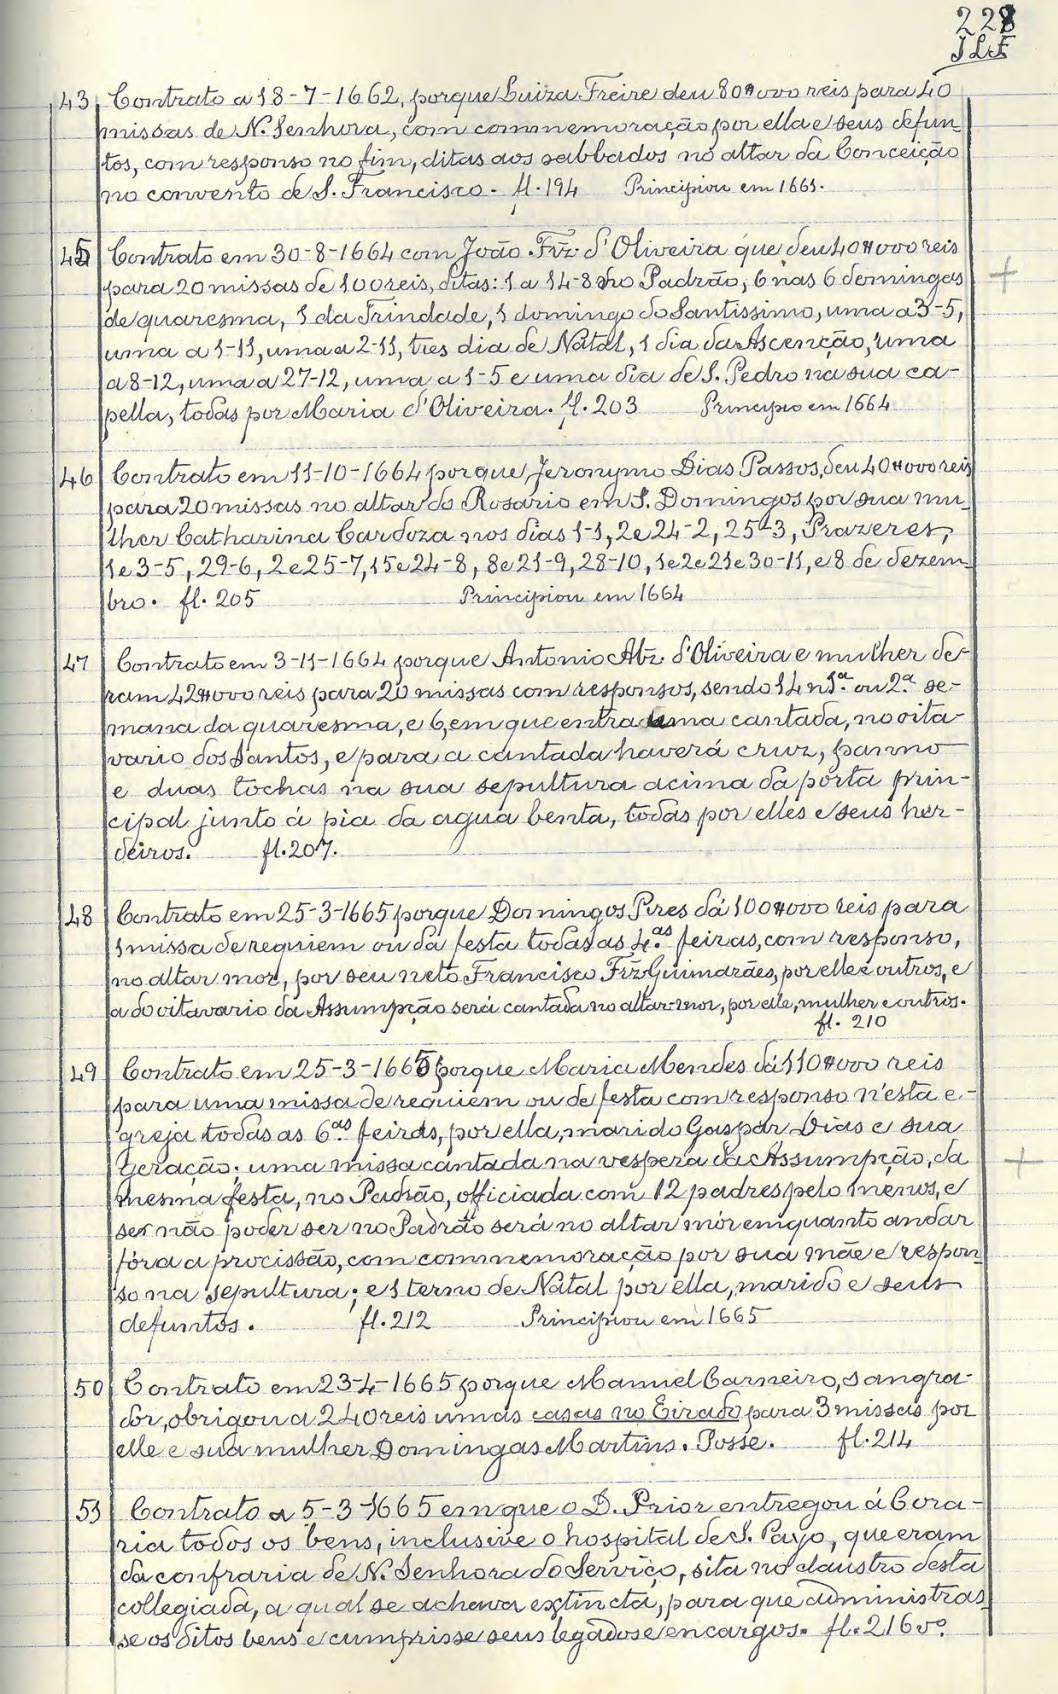 228
J L F
43 Contrato a 18-7-1662, porque Luiza Freire deu 80#000 reis para 40
missas de N. Senhora, com commemoração por ella e seus defun-
tos, com responso no fim, ditas aos sabbados no altar da Conceição
no convento de S. Francisco. fl. 194 Principiou em 1661.
45 Contrato em 30-8-1664 com João Frz d'Oliveira que deu 40#000 reis
para 20 missas de 100 reis, ditas: 1 a 14-8 no Padrão, 6 nas 6 domingas
de quaresma, 1 da Trindade, 1 domingo do Santissimo, uma a 3-5,
uma a 1-11, uma a 2-11, tres dia de Natal, 1 dia da Ascenção, uma
a 8-12, uma a 27-12, uma a 1-5 e uma dia de S. Pedro na sua ca-
pella, todas por Maria d'Oliveira. fl. 203 Principio em 1664
46 Contrato em 11-10-1664 porque Jeronymo Dias Passos, deu 40#000 reis
para 20 missas no altar do Rosario em S. Domingos por sua mu-
lher Catharina Cardoza nos dias 1-1, 2 e 24-2, 25-3, Prazeres,
1 e 3-5, 29-6, 2 e 25-7, 15 e 24-8, 8 e 21-9, 28-10, 1 e 2 e 21 e 30-11, e 8 de dezem-
bro. fl. 205 Principiou em 1664
47 Contrato em 3-11-1664 porque Antonio Abz d'Oliveira e mulher de-
ram 42#000 reis para 20 missas com responsos, sendo 14 n 1.ª ou 2.ª se-
mana da quaresma, e 6, em que entra uma cantada, no oita-
vario dos Santos, e para a cantada haverá cruz, panno
e duas tochas na sua sepultura acima da porta prin-
cipal junto á pia da agua benta, todas por elles e seus her-
deiros. fl. 207.
48 Contrato em 25-3-1665 porque Domingos Pires dá 100#000 reis para
1 missa de requiem ou da festa todas as 4.as feiras, com responso,
no altar mor, por seu neto Francisco Frz Guimarães, por elle e outros, e
a do oitavario da Assumpção será cantada no altar-mor, por elle, mulher e outros.
fl. 210
49 Contrato em 25-3-1665 porque Maria Mendes dá 110#000 reis
para uma missa de requiem ou de festa com responso n'esta e-
greja todas as 6.as feiras, por ella, marido Gaspar Dias e sua
geração; uma missa cantada na vespera da Assumpção, da
mesma festa, no Padrão, officiada com 12 padres pelo menos, e
se não poder ser no Padrão será no altar mór emquanto andar
fóra a procissão, com commemoração por sua mãe e respon-
so na sepultura; e 1 terno de Natal por ella, marido e seus
defuntos. fl. 212 Principiou em 1665
50 Contrato em 23-4-1665 porque Manuel Carneiro, sangra-
dor, obrigou a 240 reis umas casas no Eirado para 3 missas por
elle e sua mulher Domingas Martins. Posse. fl. 214
51 Contrato a 5-3-1665 em que o D. Prior entregou á Cora-
ria todos os bens, inclusive o hospital de S. Payo, que eram
da confraria de N. Senhora do Serviço, sita no claustro desta
collegiada, a qual se achava extincta, para que administras-
se os ditos bens e cumprisse seus legados e encargos. fl. 216 vº.